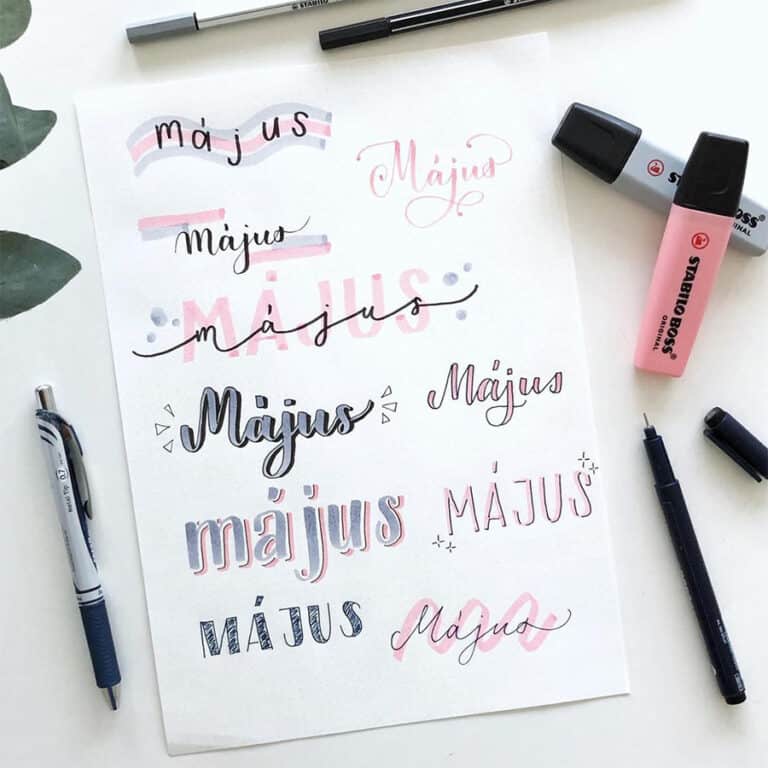 STABILO
STABILO
május
Május
Május
MÁJUS
május
Május
Május
május
MÁJUS
MÁJUS
Május
BOSS
STABILO BOSS
ORIGINAL
0.7